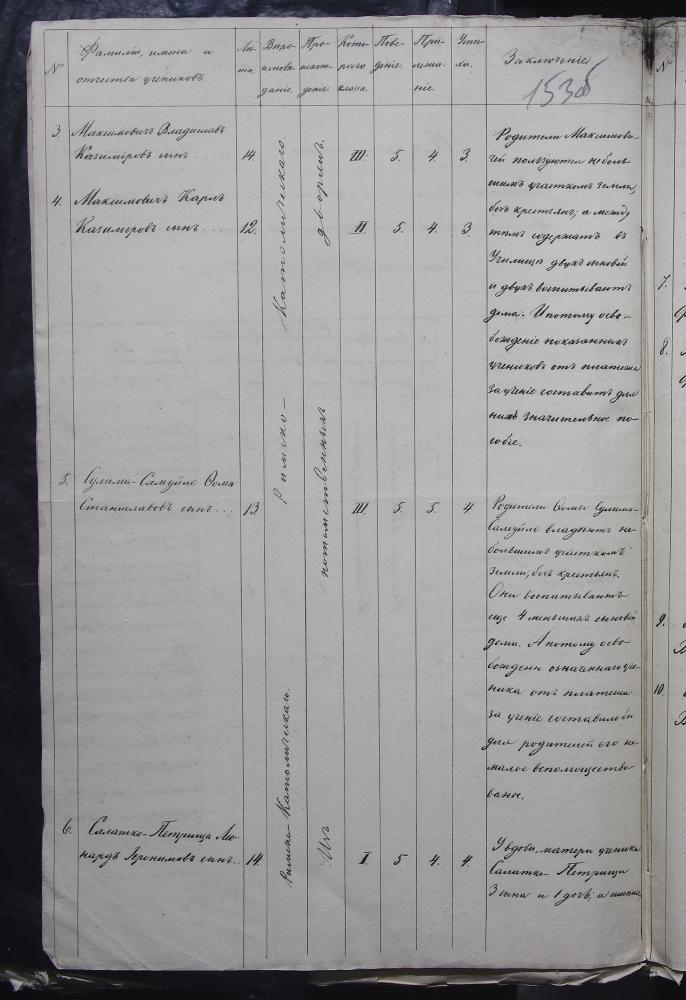 № Фамилiи, имена и отчества учениковъ. Лѣта. Вѣроисповѣданiе. Происхожденiе. Котораго класса. Поведенiе. Прилежанiе. Успѣхи. Заключенiе
153 об
3. Максимовичъ Владиславъ
Казимiровъ сынъ 14. III. 5. 4. 3.
4. Максимовичъ Карлъ
Казимiровъ сынъ... 12. II. 5. 4. 3.
Римско-Католическаго.
Изъ потомственныхъ дворянъ.
Родители Максимови-
чей пользуются неболь
шимъ участкомъ земли,
безъ крестьянъ; а между
тѣмъ содержатъ въ
Училищѣ двухъ сыновей
и двухъ воспитываютъ
дома. И потому осво-
божденiе показанныхъ
учениковъ отъ платежа
за ученiе составитъ для
нихъ значительное по-
собiе.
5. Сулима-Самуйло Ѳома
Станиславовъ сынъ... 13. III. 5. 5. 4.
Родители Ѳомы Сулима-
Самуйло владѣютъ не-
большимъ участкомъ
земли, безъ крестьянъ.
Они воспитываютъ
еще 4 меньшихъ сыновей
дома. А потому осво
божденiе означеннаго уче-
ника отъ платежа
за ученiе составило бы
для родителей его не
малое вспомощество
ванiе.
6. Салатко-Петрища Лео-
нардъ Iеронимовъ сынъ.. 14. I. 5 4. 4.
Римско-Католическаго.
У вдовы-матери ученика
Салатко-Петрищи
3 сына и 1 дочь; а имѣнiя
№
7.
8.
9.
10.